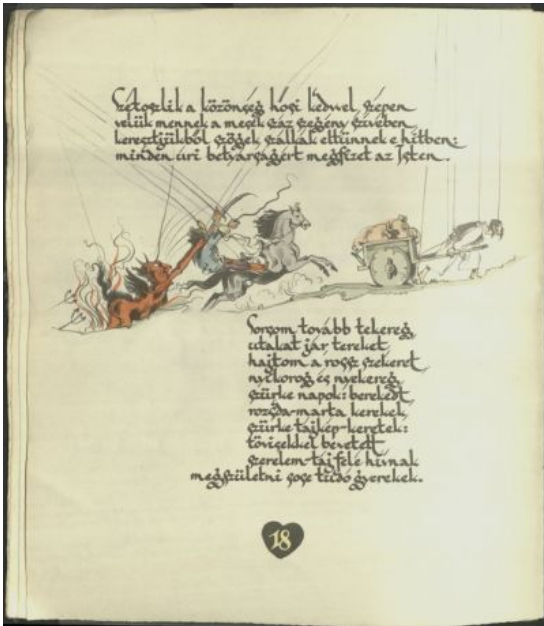 Szétoszlik a közönség hősi kedvvel szépen
velük mennek a mesék száz szegény szívében
keresztjükből szögek szálkák eltűnnek e hitben:
minden úri betyárságért megfizet az Isten.
Sorsom tovább tekereg,
utakat jár, tereket
hajtom a rossz szekeret
nyikorog és nyekereg,
szürke napok: berekedt
rozsda-marta kerekek,
szürke tájkép-keretek:
tövisekkel bevetett
szerelem-táj felé hívnak
megszületni sose tudó gyerekek.
18